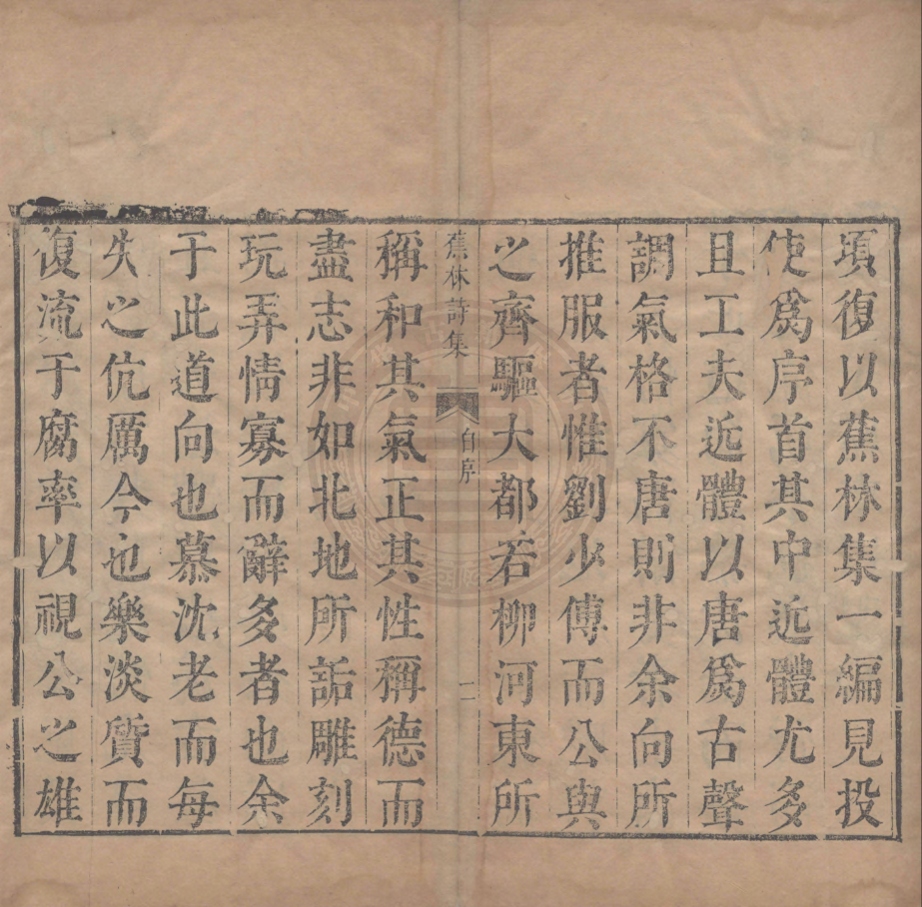 頃復以蕉林集一編見投
使爲序首其中近體尤多
且工夫近體以唐爲古聲
調氣格不唐則非余向所
推服者惟劉少傅而公與
之齊驅大都若柳河東所
蕉林詩集 自序 二
稱和其氣正其性稱德而
盡志非如北地所詬雕刻
玩弄情寡而辭多者也余
于此道向也慕沈老而每
失之伉厲今也樂淡質而
復流于腐率以視公之雄